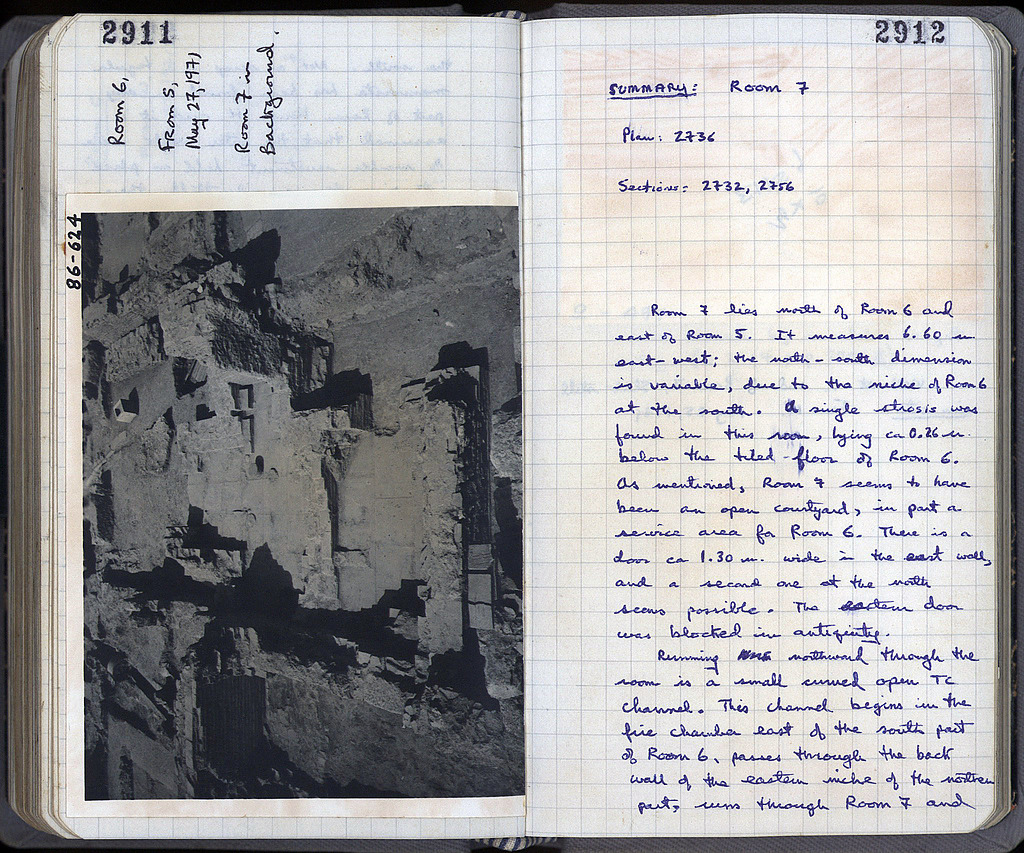 2911
Room 6,
From 5,
May 27, 1971
Room 7 in
Background.
86-624
2912
SUMMARY: Room 7
Plan: 2736
Sections: 2732, 2756
Room 7 lies north of Room 6 and
east of Room 5. It measures 6.60 m.
east-west; the north-south dimension
is variable, due to the niche of Room 6
at the south. A single strosis was
found in this room, lying ca 0.26 m.
below the tiled floor of Room 6.
As mentioned, Room 7 seems to have
been an open courtyard, in part a
service area for Room 6. There is a
door ca 1.30 m. wide in the east wall,
and a second one at the north
seems possible. The eastern door
was blocked in antiquity.
Running northward through the
room is a small curved open TC
channel. This channel begins in the
fire chamber east of the south part
of Room 6, passes through the back
wall of the eastern niche of the northern
part, runs through Room 7 and